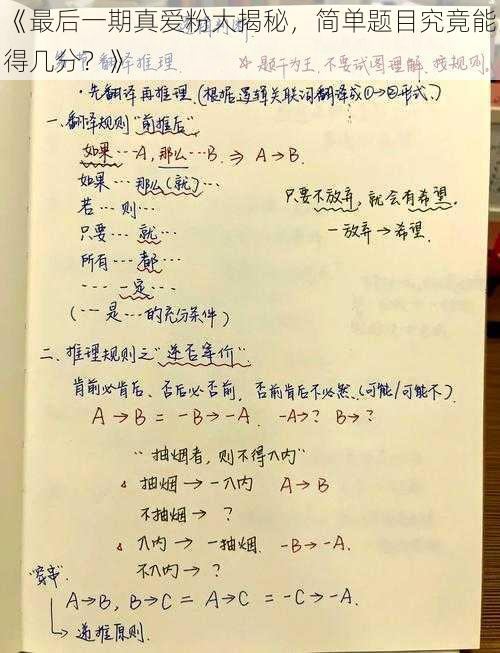 《最后一期真爱粉丝揭秘，简单题目究竟能
得几分？》
翻译推理. ☆题干为王,不要试图理解,找规则。
·先翻译再推理.(根据逻辑关联词翻译成①→②形式.)
一.翻译规则“前推后”
如果…A,那么…B. ⇒ A→B.
如果…那么(就)…
若…则…
只要…就…
所有…都…
……一定…
(…是…的充分条件)
只要不放弃,就会有希望。
-放弃→希望.
二.推理规则之“逆否等价”
肯前必肯后、否后必否前, 否前肯后不必然.(可能/可能不).
A→B = -B→-A. -A→? B→?
“抽烟者,则不得入内”
抽烟→-入内 A→B
不抽烟→ ?
入内→-抽烟. -B→-A.
不入内→?
A→B, B→C = A→C = -C→-A.
递推原则.